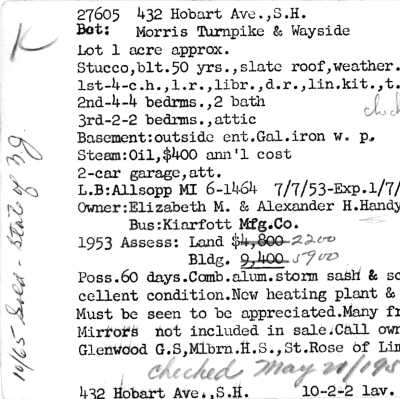 K
27605 432 Hobart Ave.,S.H.
Bet: Morris Turnpike & Wayside
Lot 1 acre approx.
Stucco,blt.50 yrs.,slate roof,weather.
1st-4-c.h.,l.r.,libr.,d.r.,lin.kit.,t.
2nd-4-4 bedrms.,2 bath
3rd-2-2 bedrms.,attic
Basement:outside ent.Gal.iron w. p.
Steam:Oil,$400 ann'l cost
2-car garage,att.
L.B:Allsopp MI 6-1464 7/7/53-Exp.1/7/
Owner:Elizabeth M. & Alexander H.Handy
Bus:Kiarfott Mfg.Co.
1953 Assess: Land $4,800 2200
Bldg. 9,400 5900
Poss.60 days.Comb.alum.storm sash & sc
cellent condition.New heating plant &
Must be seen to be appreciated.Many fr
Mirrors not included in sale.Call own
Glenwood G.S,Mlbrn.H.S.,St.Rose of Lim
checked May 21/195
432 Hobart Ave.,S.H. 10-2-2 lav.
10/65 - State of N.J.